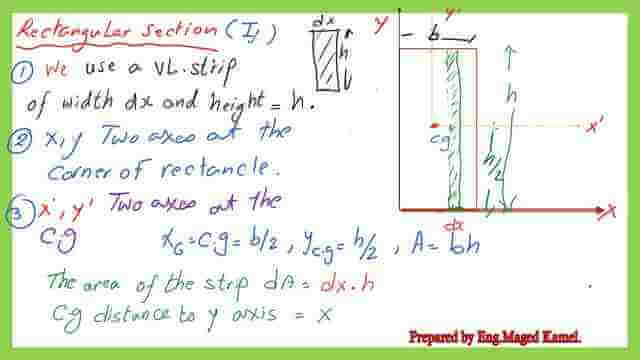 Rectangular section (Iy)
① We use a VL. strip
of width dx and height = h.
② x, y Two axes at the
corner of rectancle.
③ x', y' Two axes at the
C.g
xG = C.g = b/2, yc.g = h/2, A = bh
The area of the strip dA = dx.h
Cg distance to y axis = x
dx
h
y
y'
b
h
x'
cg
h/2
x
dx
Prepared by Eng.Maged Kamel.